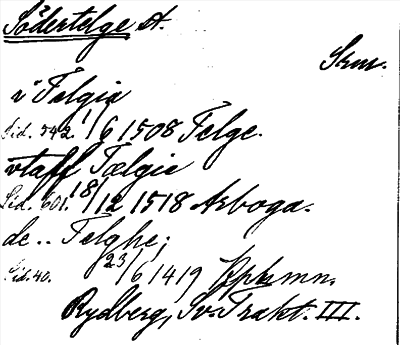 Södertelge st.
Skm.
i Telgia
Sid. 542. 1/6 1508 Telge.
vtaff Tælgie
Sid. 601. 18/12 1518 Arboga.
de .. Telghe;
Sid. 40. 23/6 1419 Kphmn.
Rydberg, Sv. Trakt. III.